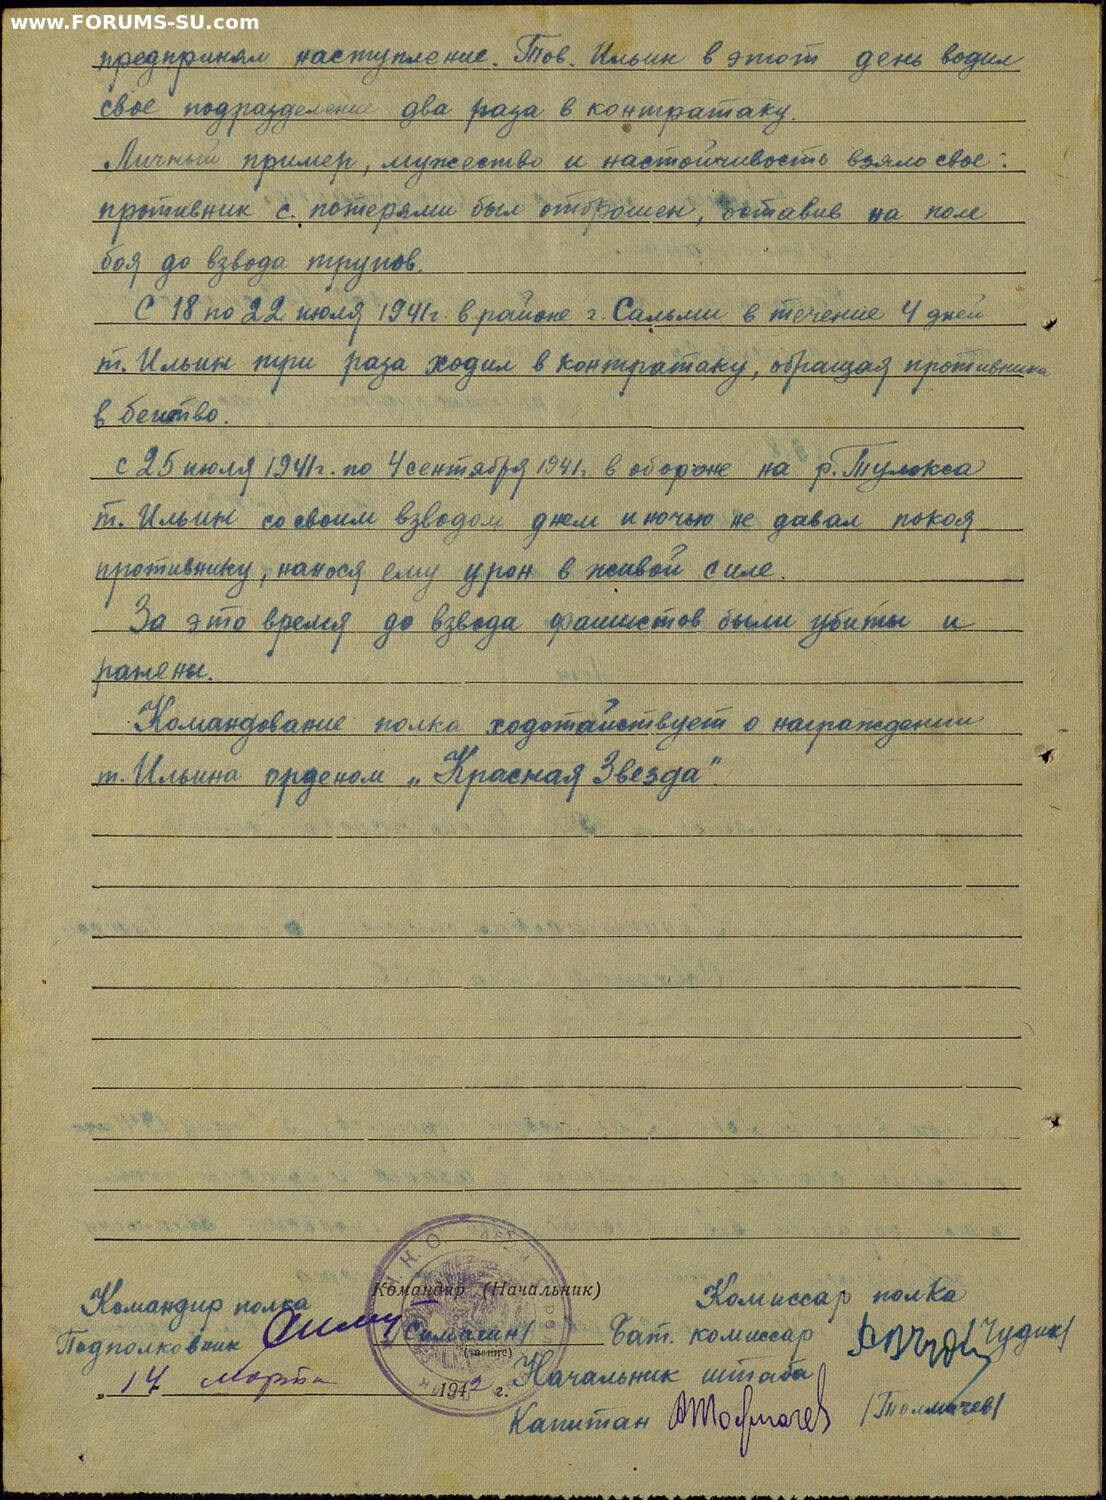 www.FORUMS-SU.com
предпринял наступление. Тов. Ильин в этот день водил
свое подразделение два раза в контратаку.
Личный пример, мужество и настойчивость взяло свое:
противник с потерями был отброшен, оставив на поле
боя до взвода трупов.
С 18 по 22 июля 1941г. в районе г. Сальми в течение 4 дней
т. Ильин три раза ходил в контратаку, обращая противника
в бегство.
с 25 июля 1941г. по 4 сентября 1941г. в обороне на р. Тулокса
т. Ильин со своим взводом днем и ночью не давал покоя
противнику, нанося ему урон в живой силе.
За это время до взвода фашистов были убиты и
ранены.
Командование полка ходотайствует о награждении
т. Ильина орденом „Красная Звезда".
Н.К.О.
Командир (Начальник)
Командир полка
Комиссар полка
Подполковник /Симагин/
Бат. комиссар /Чудин/
(звание)
„14 марта 1942 г.
Начальник штаба
Капитан /Толмачев/